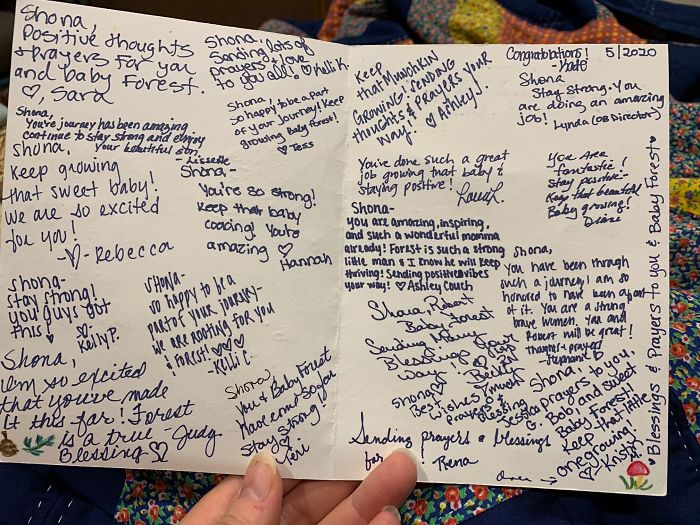 Shona,
Positive thoughts
& prayers for you
and baby Forest.
♡, Sara
Shona,
Sending lots of
prayers & love
to you all! ♡ Kelli K.
Shona,
So happy to be a part
of your journey! Keep
growing Baby Forest!
♡ Tess
Shona,
You're journey has been amazing
continue to stay strong and enjoy
your beautiful son
Lissette
Shona,
Keep growing
that sweet baby!
We are so excited
for you!
♡- Rebecca
Shona,-
You're so strong!
Keep that baby
coocing! You're
amazing ♡
Hannah
Shona-
stay strong!
you guys got
this! ♡-
Kelly P.
SHONA-
so happy to be a
part of your journey-
we are rooting for you
& Forest! ♡♡♡
-Kelli C.
Shona,
I'm so excited
that you've made
it this far! Forest
is a true - Judy
Blessing ♡
Shona,
You & Baby Forest
Have come so far
Stay strong!
Teri
Keep
that Munchkin
Growing! Sending
thoughts & prayers your
way. ♡ Ashley J.
Congratulations! 5/2020
-Kate
Shona
Stay Strong. You
are doing an amazing
job! Lynda (OB Director)
You've done such a great
job growing that baby &
staying positive!
You Are
fantastic!
Stay positive-
Keep that beautiful
Baby growing!
Diane
Shona-
you are amazing, inspiring,
and such a wonderful momma
already! Forest is such a strong
little man & I know he will keep
thriving! Sending positive vibes
your way! ♡ Ashley Couch
Shona,
You have been through
such a journey, I am so
honored to have been a part
of it. You are a strong
brave women. You and
Robert will be great!
Thoughts & prayers
-Stephanie B
Shona, Robert
Baby Forest
Sending Many
Blessings your
way! ♡
Becky RN
Shona
Best wishes
Prayers &
Blessing
Jessica G.
Shona,
prayers to you,
Bob, and sweet
Baby Forest!
Keep that little
one growing!
♡ Kristy
Sending prayers & blessings
Rena
over →
♥ Blessings & Prayers to you & Baby Forest ♥